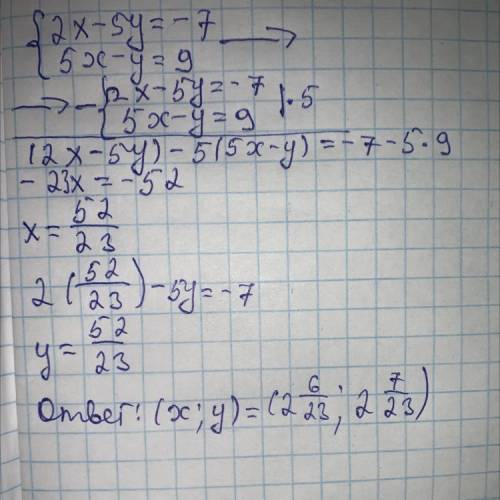 {2x-5y=-7
5x-y=9 →
→ -{2x-5y=-7
5x-y=9 |·5
(2x-5y)-5(5x-y)=-7-5·9
-23x=-52
x=52/23
2(52/23)-5y=-7
y=52/23
Ответ: (x;y)=(2 6/23; 2 7/23)